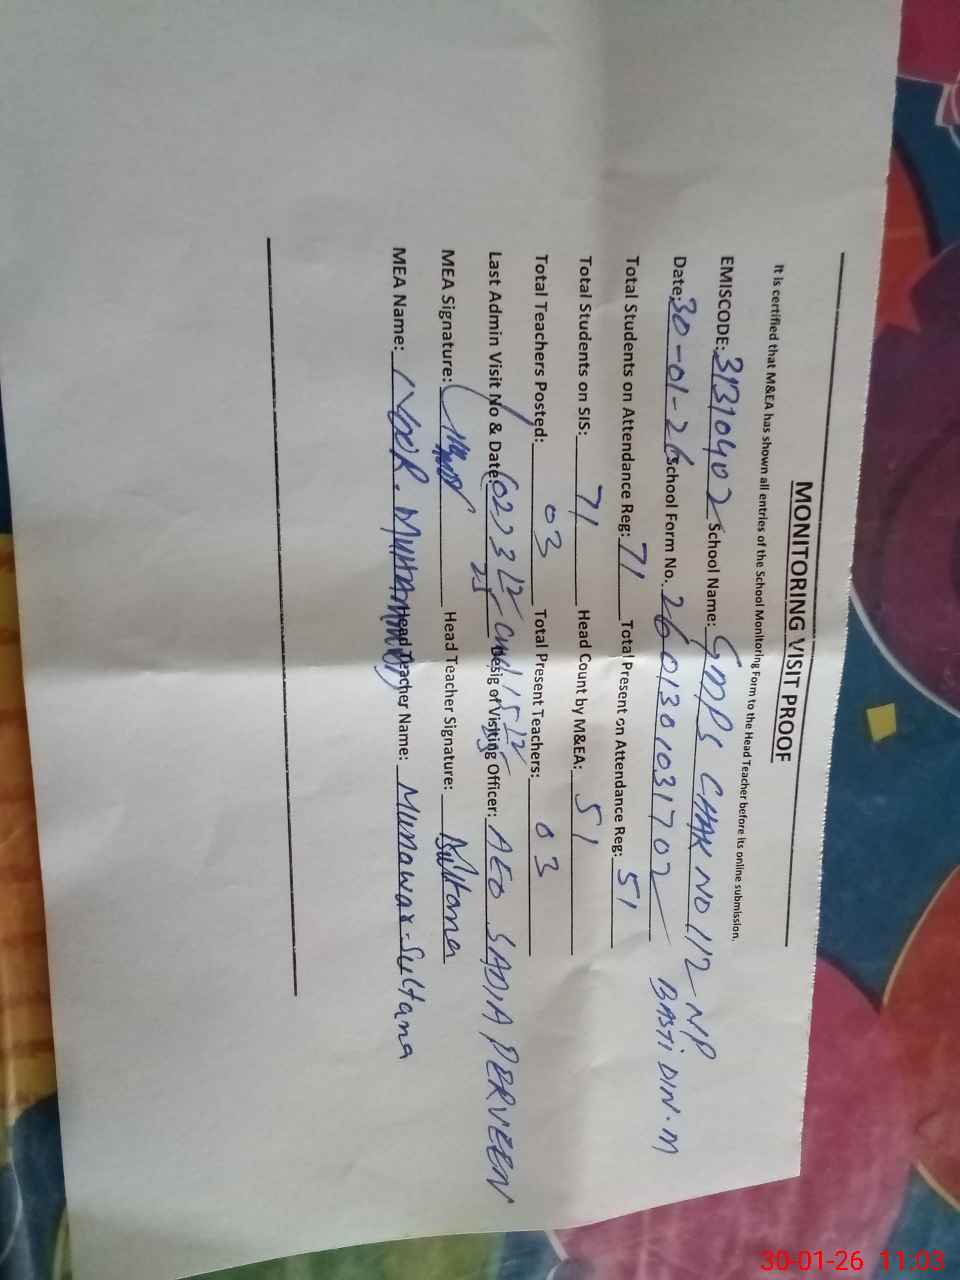 MONITORING VISIT PROOF
It is certified that M&EA has shown all entries of the School Monitoring Form to the Head Teacher before its online submission.
EMISCODE: 31310402 School Name: GMPS CHAK NO 112 NP
BASTI DIN.M
Date: 30-01-26 School Form No. 2601301031702
Total Students on Attendance Reg: 71 Total Present on Attendance Reg: 51
Total Students on SIS: 71 Head Count by M&EA: 51
Total Teachers Posted: 03 Total Present Teachers: 03
Last Admin Visit No & Date: (02) 3/12/25 Desig of Visiting Officer: AEO SADIA PERVEEN
MEA Signature: Head Teacher Signature: Sultana
MEA Name: NOOR. MUHAMMAD Head Teacher Name: Munawar-Sultana
30-01-26 11:03